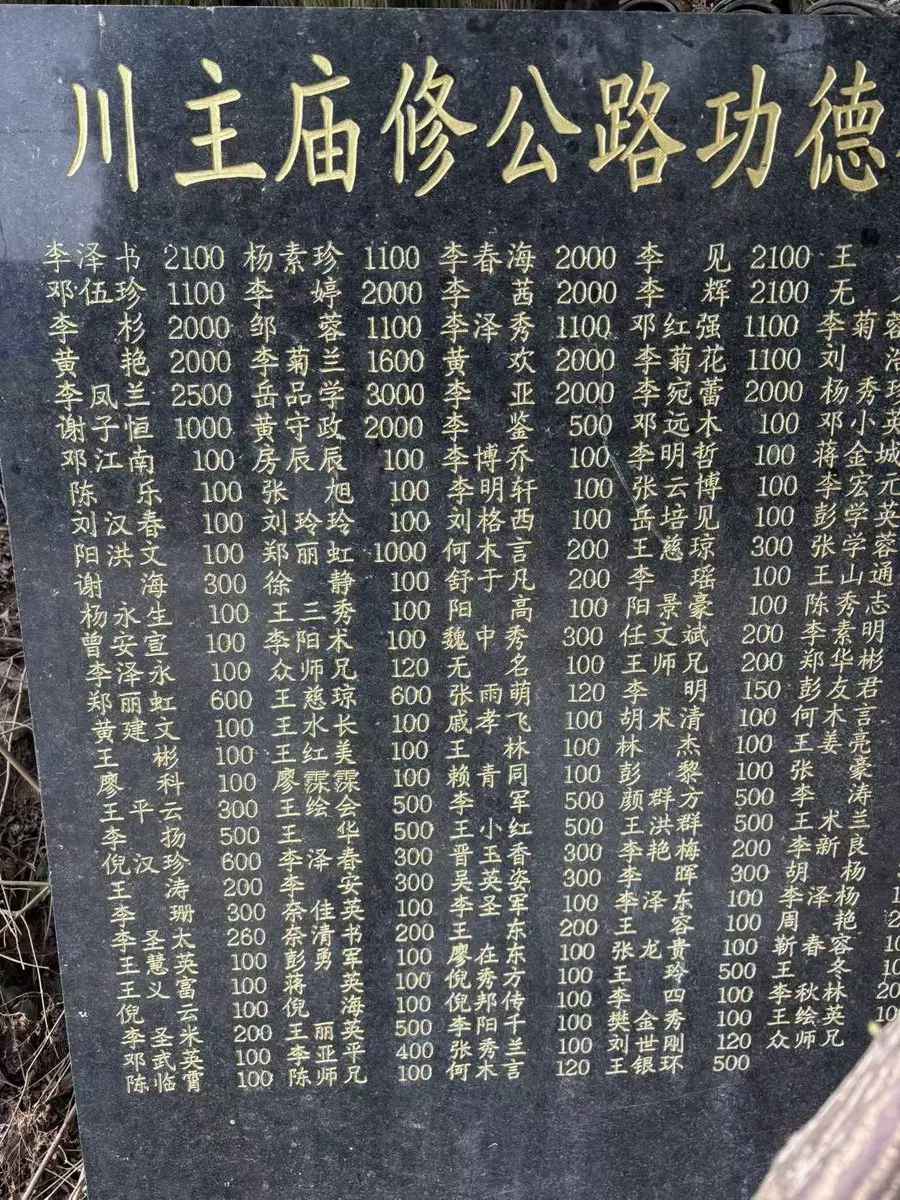 川主庙修公路功德
李泽书 2100 杨素珍 1100 李春海 2000 李见 2100 王
邓伍珍 1100 李婷 2000 李茜 2000 李辉 2100 无
李杉 2000 邹蓉 1100 李泽秀 1100 邓红强 1100 李菊蓉
黄艳 2000 李菊兰 1600 黄欢 2000 李菊花 1100 刘
李凤兰 2500 岳品学 3000 李亚 2000 李宛蕾 2000 杨秀
谢子恒 1000 黄守政 2000 李鉴 500 邓远木 100 邓小英
邓江南 100 房辰辰 100 李博乔 100 李明哲 100 蒋金城
陈乐 100 张旭 100 李明轩 100 张云博 100 李宏元
刘汉春 100 刘玲玲 100 刘格西 100 岳培见 100 彭学英
阳洪文 100 郑丽虹 1000 何木言 200 王慈琼 300 张学蓉
谢海 300 徐静 100 舒于凡 200 李瑶 100 王山通
杨永生 100 王三秀 100 阳高 100 阳景豪 100 陈秀志
曾安宣 100 李阳术 100 魏中秀 300 任文斌 200 李素明
李泽永 100 众师兄 120 无名 100 王师兄 200 郑华彬
郑丽虹 600 王慈琼 600 张雨萌 120 李明 150 彭友君
黄建文 100 王水长 100 戚孝飞 100 胡术清 100 何木言
王彬 100 王红美 100 王林 100 林杰 100 王姜亮
廖科 100 廖霂霂 100 赖青同 100 彭黎 100 张豪
王平云 300 王绘会 500 李军 500 颜群方 500 李涛
李扬 500 王华 500 王小红 500 王洪群 500 王术兰
倪汉珍 600 李泽春 300 晋玉香 300 李艳梅 200 李新良
王涛 200 李安 300 吴英姿 300 李晖 300 胡杨
李珊 300 佘佳英 100 李圣军 100 李泽东 100 李泽杨
李圣太 260 佘清书 200 王东 200 王容 100 周艳
王慧英 100 彭勇军 100 廖在东 100 张龙贵 100 靳春容
王义富 100 蒋英 100 倪秀方 100 王玲 500 王冬
倪云 100 倪海 100 倪邦传 100 李四 100 李秋林
李圣米 200 王丽英 500 李阳千 100 樊金秀 100 王绘英
邓武英 100 李亚平 400 张秀兰 100 刘世刚 120 众师兄
陈临霄 100 陈师兄 100 何木言 120 王银环 500